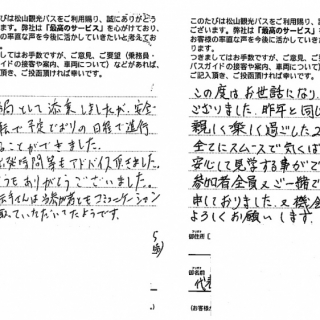 たびは松山観光バスをご利用賜り、誠にありがとう
ます。弊社は「最高のサービス」を心がけており、
の率直な声を今後に活かしていきたいと考えてお
ましてはお手数ですが、ご意見、ご要望（乗務員・
イドの接客や案内、車両について）などがあれば、
頂き、ご投函頂ければ幸いです。
として添乗しましたが、安全
転で予定どおりの日程で進行
ことができました。
発時間等もアドバイス頂きました。
うもありがとうございました。
このたびは松山観光バスをご利用賜り、
ございます。弊社は「最高のサービス」
お客様の率直な声を今後に活かしてい
ります。
つきましてはお手数ですが、ご意見、
バスガイドの接客や案内、車両につい
ご記入頂き、ご投函頂ければ幸いです
この度はお世話になり、
ございました。昨年と同じ
親しく楽しく過ごした2
全てにスムースで気くば
安心して見学する事ができ
参加者全員又ご一緒で
申しておりました。又機会
よろしくお願いします。
御住所
御名前
代表
（お客様